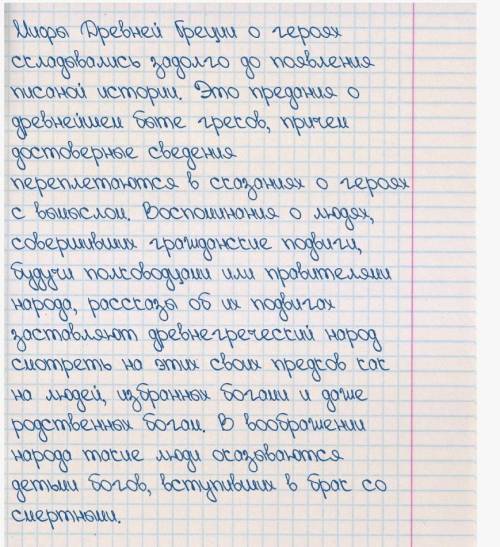 Мифы Древней Греции о героях
складывались задолго до появления
писаной истории. Это предания о
древнейшем быте греков, причем
достоверные сведения
переплетаются в сказаниях о героях
с вымыслом. Воспоминания о людях,
совершивших гражданские подвиги,
будучи полководцами или правителями
народа, рассказы об их подвигах
заставляют древнегреческий народ
смотреть на этих своих предков как
на людей, избранных богами и даже
родственных богам. В воображении
народа такие люди оказываются
детьми богов, вступивших в брак со
смертными.